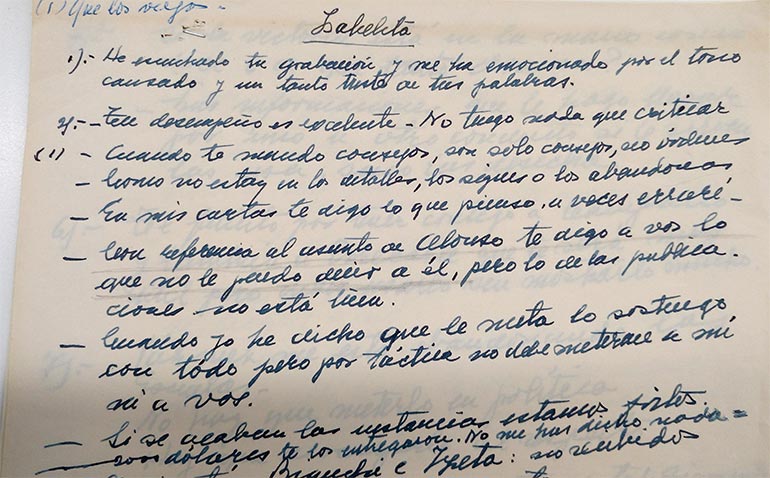 (1) Que los vuego -
Isabelita
1).- He escuchado tu grabación y me ha emocionado por el tono
causado y un tanto triste de tus palabras.
2.- - Tu desempeño es excelente - No tengo nada que criticar
(1) - Cuando te mando consejos, son solo consejos, no órdenes
- Como no estoy en los detalles, los sigues o los abandonas
- En mis cartas te digo lo que pienso. a veces erraré -
- Con referencia al asunto de Alonso te digo a vos lo
que no le puedo decir a él, pero lo de las publica-
ciones no está bien.
- Cuando yo he dicho que le meta lo sostengo
con todo pero por táctica no debe meterme a mí
ni a vos.
- Si se acaban las instancias estamos fritos.
dólares te los entregaron. No me has dicho nada =
e Izeta: no